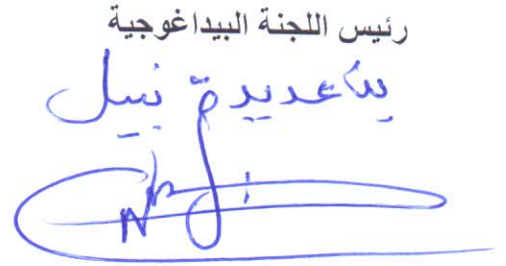 رئيس اللجنة البيداغوجية
بلعديدة نبيل